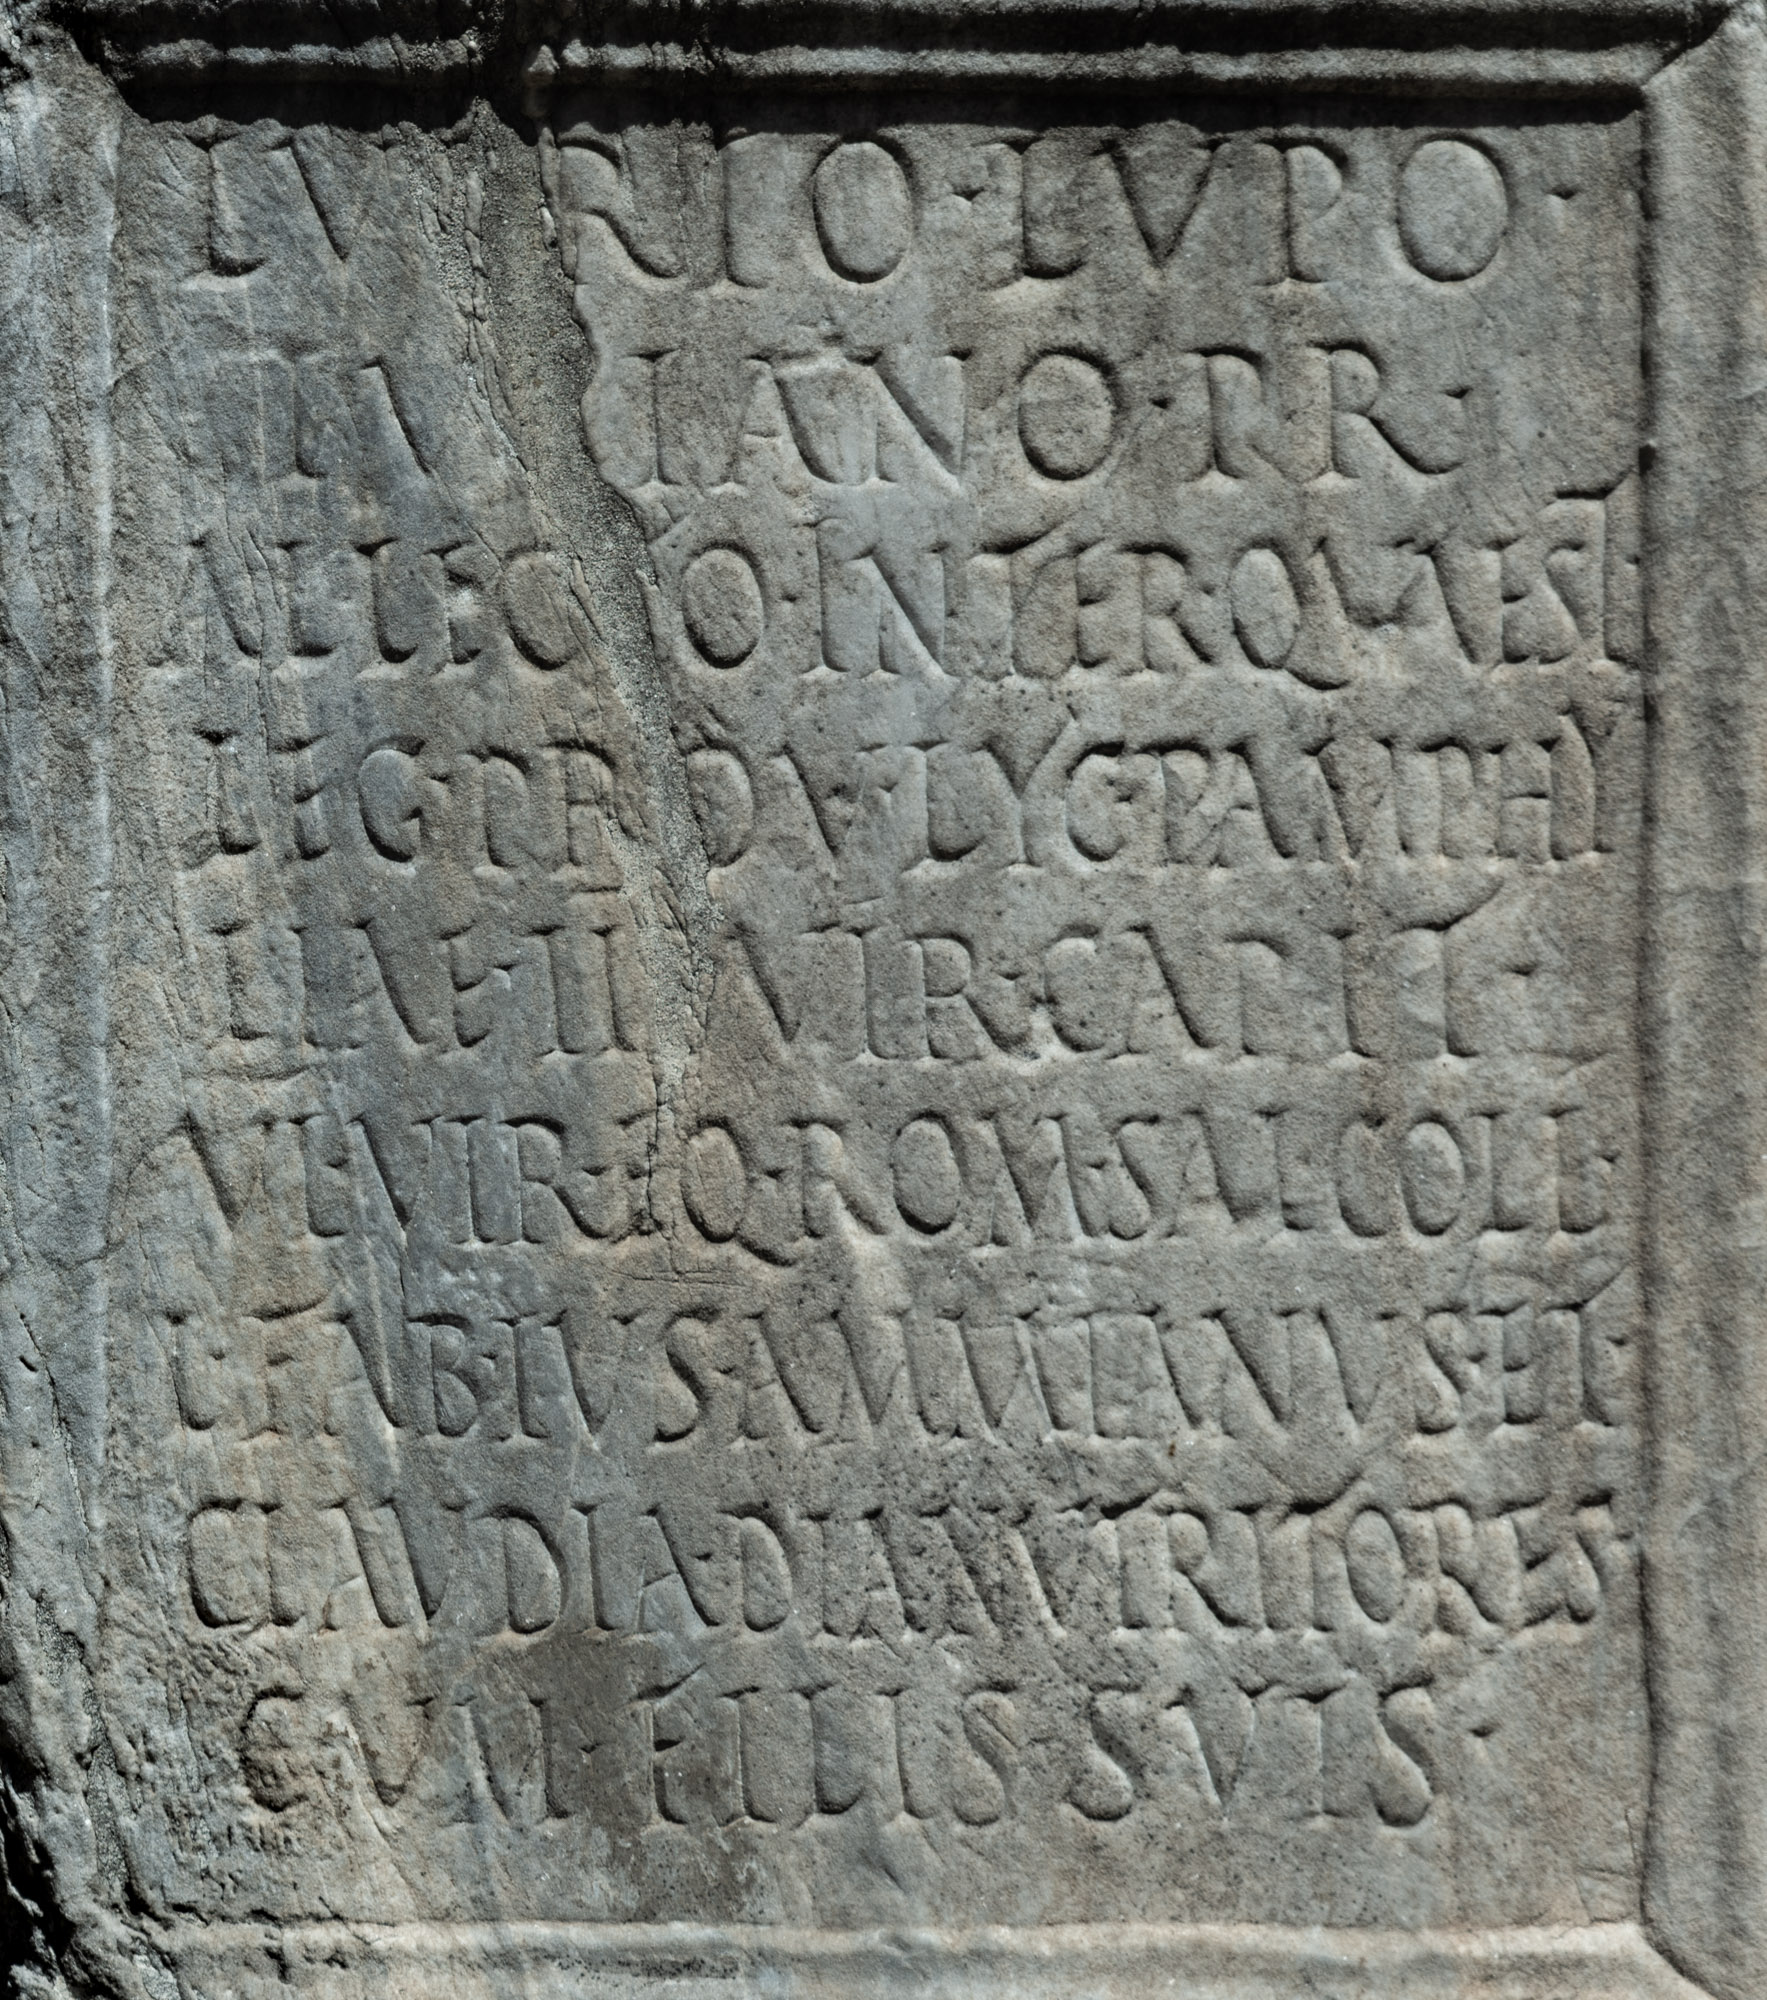 RIO · LVPO ·
IANO · PR ·
ALLECTO · INTER · QVAEST ·
LEG · PROV · LYC · PAMPHY
LIAE · II VIR · CAPIT ·
VI · VIR · EQ · ROM · SAL · COLL ·
L · FABIVS · AMMIANVS · ET ·
CLAVDIA · DIA · NVTRITORES ·
CVM · FILIS · SVIS ·